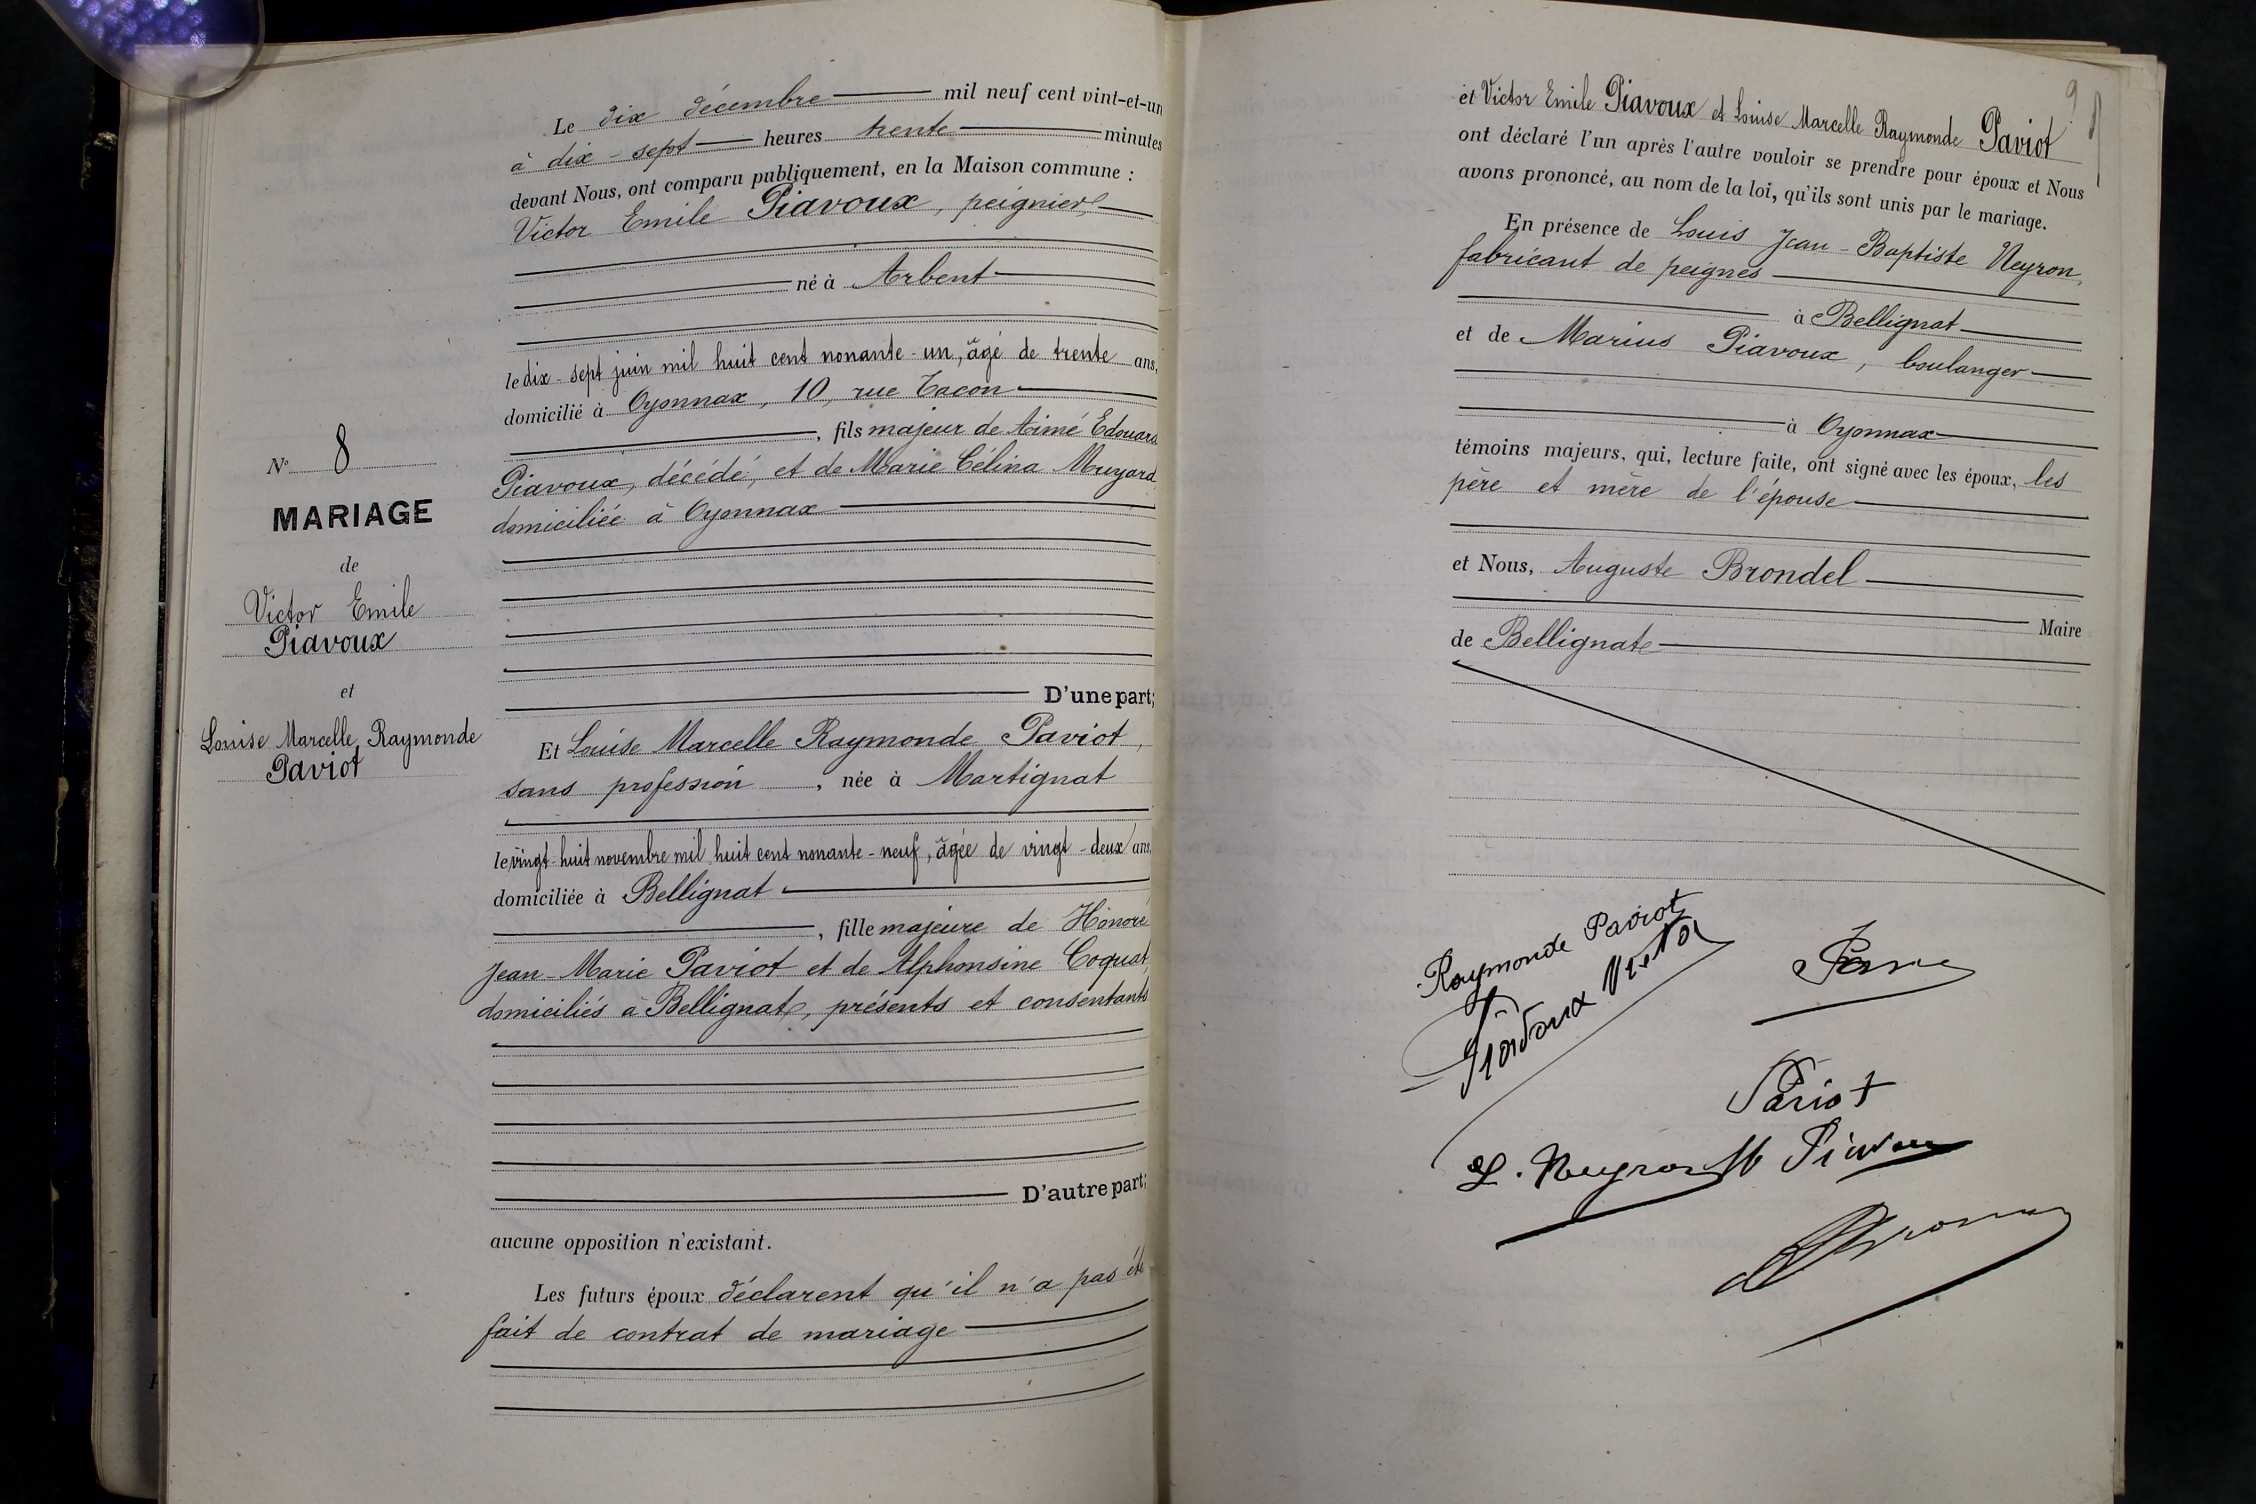 Le dix décembre mil neuf cent vint-et-un
à dix-sept heures trente minutes
devant Nous, ont comparu publiquement, en la Maison commune :
Victor Emile Piavoux, peignier,
né à Arbent
le dix-sept juin mil huit cent nonante-un, âgé de trente ans,
domicilié à Oyonnax, 10, rue Tacon
, fils majeur de Aimé Edouard
Piavoux, décédé, et de Marie Célina Muyard
domiciliée à Oyonnax
D'une part;
N° 8
MARIAGE
de
Victor Emile
Piavoux
et
Louise Marcelle Raymonde
Paviot
Et Louise Marcelle Raymonde Paviot,
sans profession, née à Martignat
le vingt-huit novembre mil huit cent nonante-neuf, âgée de vingt-deux ans
domiciliée à Bellignat
, fille majeure de Honoré
Jean-Marie Paviot et de Alphonsine Coquat,
domiciliés à Bellignat, présents et consentants
D'autre part;
aucune opposition n'existant.
Les futurs époux déclarent qu'il n'a pas été
fait de contrat de mariage
9
et Victor Emile Piavoux et Louise Marcelle Raymonde Paviot
ont déclaré l'un après l'autre vouloir se prendre pour époux et Nous
avons prononcé, au nom de la loi, qu'ils sont unis par le mariage.
En présence de Louis Jean-Baptiste Neyron,
fabricant de peignes
à Bellignat
et de Marius Piavoux, boulanger
à Oyonnax
témoins majeurs, qui, lecture faite, ont signé avec les époux, les
père et mère de l'épouse
et Nous, Auguste Brondel
Maire
de Bellignat
Raymonde Paviot
Piavoux Victor
Paviot
L. Neyron M Piavoux